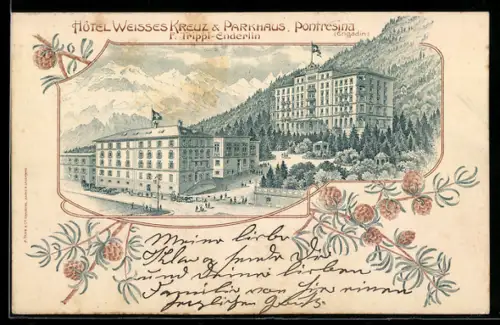 HÔTEL WEISSES KREUZ & PARKHAUS, PONTRESINA
F. Trippi-Enderlin (Engadin)
Meine liebe
Klara sende Dir
und deine lieben
Familie von hier einen
herzlichen Gruß